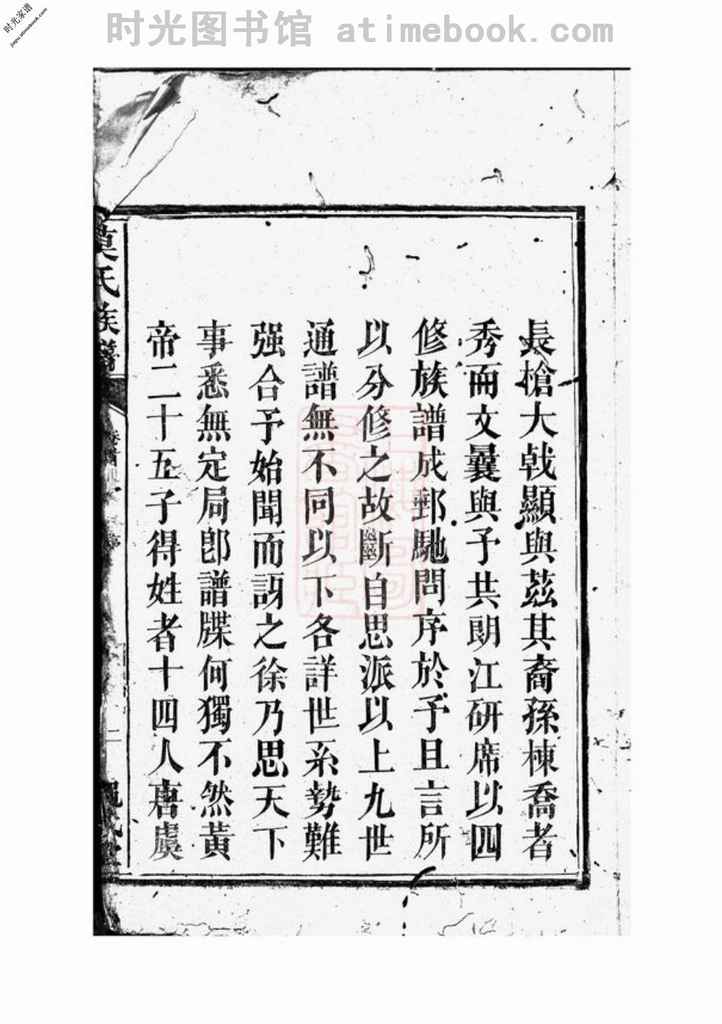 时光图书馆 atimebook.com
时光家谱
jiapu.atimebook.com
長槍大戟顯與茲其裔孫棟喬者
秀而文曩與予共朗江研席以四
修族譜成郵馳問序於予且言所
以分修之故斷自思派以上九世
通譜無不同以下各詳世系勢難
强合予始聞而訝之徐乃思天下
事悉無定局卽譜牒何獨不然黃
帝二十五子得姓者十四人唐虞
氏族譜
二